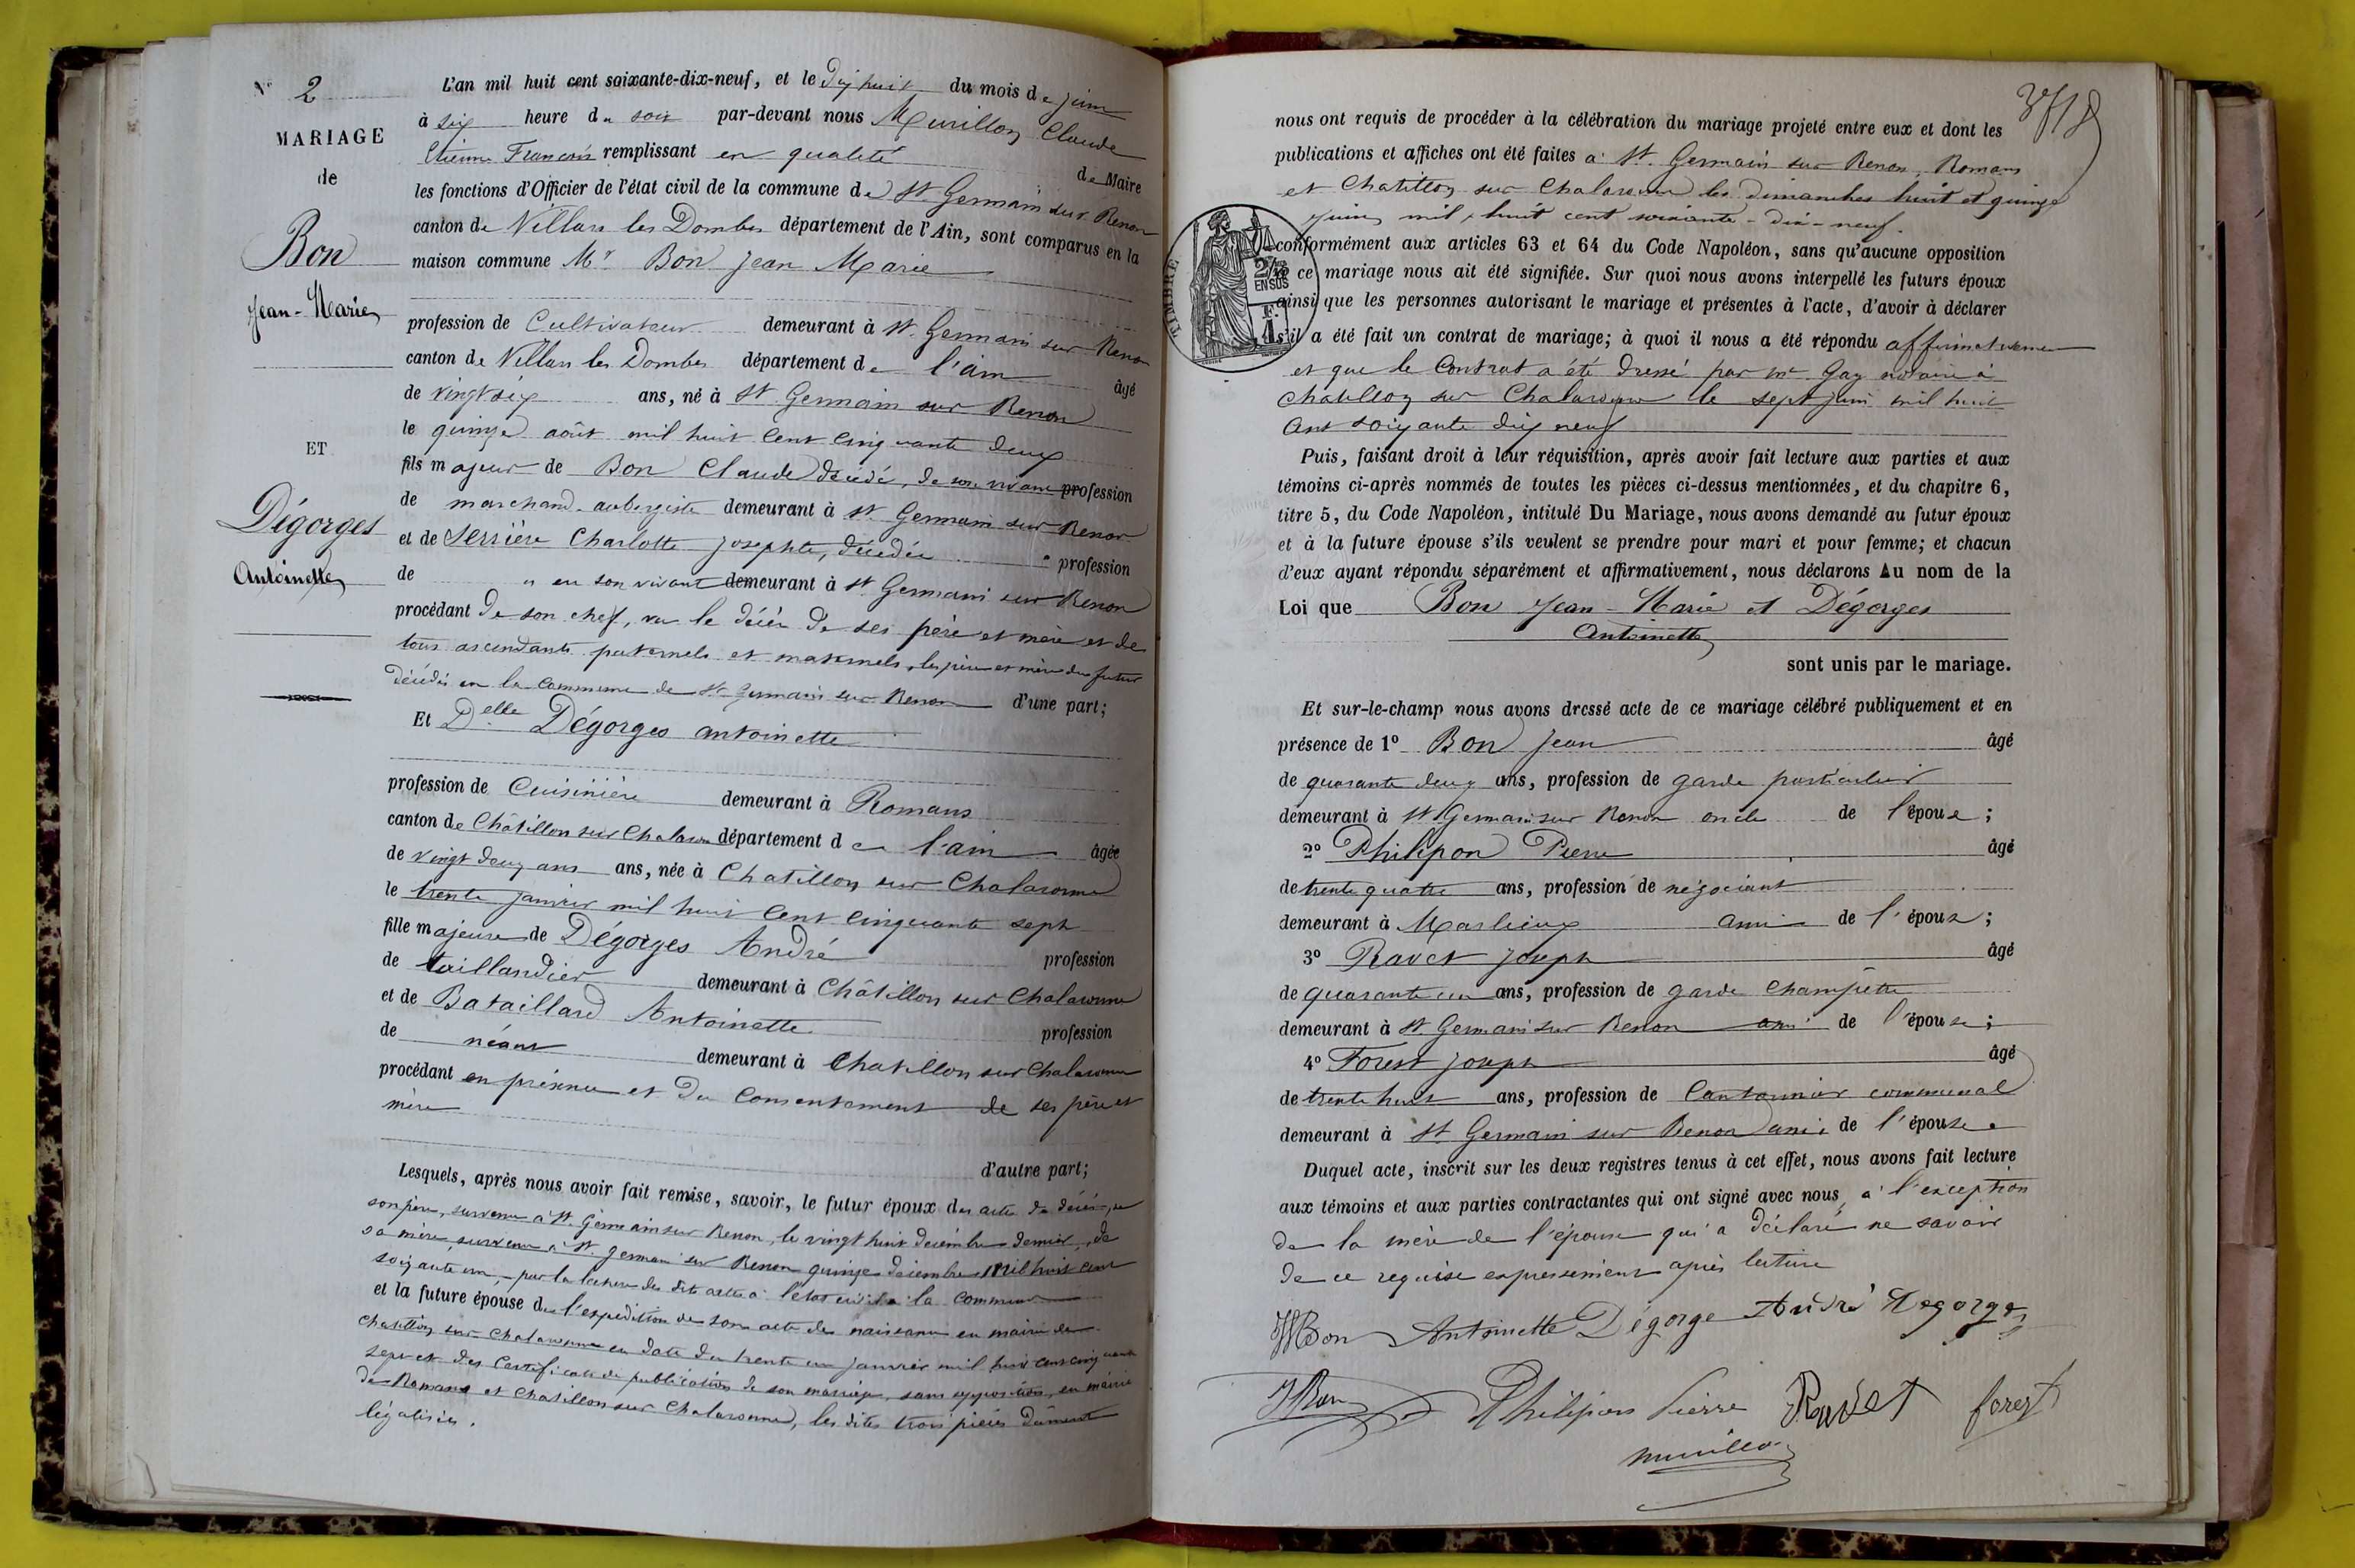 N° 2
MARIAGE
de
Bon
Jean-Marie
ET
Dégorges
Antoinette
L'an mil huit cent soixante-dix-neuf, et le dix huit du mois de juin
à six heure du soir par-devant nous Murillon Claude
Etienne François remplissant en qualité de Maire
les fonctions d'Officier de l'état civil de la commune de St Germain sur Renon
canton de Villars les Dombes département de l'Ain, sont comparus en la
maison commune Mr Bon Jean Marie
profession de Cultivateur demeurant à St Germain sur Renon
canton de Villars les Dombes département de l'ain âgé
de vingt six ans, né à St Germain sur Renon
le quinze août mil huit cent cinquante deux
fils majeur de Bon Claude décédé, de son vivant profession
de marchand aubergiste demeurant à St Germain sur Renon
et de Serrière Charlotte Josephte, décédée profession
de " en son vivant demeurant à St Germain sur Renon
procédant de son chef, vu le décès de ses père et mère et de
tous ascendants paternels et maternels, les père et mère du futur
décédés en la commune de St Germain sur Renon d'une part;
Et Delle Dégorges antoinette
profession de Cuisinière demeurant à Romans
canton de Châtillon sur Chalaronne département de l'ain âgée
de vingt deux ans ans, née à Chatillon sur Chalaronne
le trente janvier mil huit cent cinquante sept
fille majeure de Dégorges André profession
de taillandier demeurant à Châtillon sur Chalaronne
et de Bataillard Antoinette profession
de néant demeurant à Chatillon sur Chalaronne
procédant en présence et du consentement de ses père et
mère
d'autre part;
Lesquels, après nous avoir fait remise, savoir, le futur époux des actes de décès, de
son père, survenu à St Germain sur Renon, le vingt huit décembre dernier, de
sa mère, survenu à St germain sur Renon quinze décembre mil huit cent
soixante un, par la lecture des dits actes à l'état civil de la commune
et la future épouse de l'expédition de son acte de naissance en mairie de
Chatillon sur Chalaronne en date du trente un janvier mil huit cent cinquante
sept et des certificats de publication de son mariage, sans opposition, en mairie
de Romans et Chatillon sur Chalaronne, les dites trois pièces dûment
légalisées.
nous ont requis de procéder à la célébration du mariage projeté entre eux et dont les
publications et affiches ont été faites à St. Germain sur Renon, Romans
et Chatillon sur Chalaronne les dimanches huit et quinze
Juin mil huit cent soixante-dix-neuf.
TIMBRE
2/10 EN SUS
conformément aux articles 63 et 64 du Code Napoléon, sans qu'aucune opposition
ce mariage nous ait été signifiée. Sur quoi nous avons interpellé les futurs époux
ainsi que les personnes autorisant le mariage et présentes à l'acte, d'avoir à déclarer
s'il a été fait un contrat de mariage; à quoi il nous a été répondu affirmativement
et que le contrat a été dressé par me Gay notaire à
Chatillon sur Chalaronne le sept juin mil huit
cent soixante dix neuf
Puis, faisant droit à leur réquisition, après avoir fait lecture aux parties et aux
témoins ci-après nommés de toutes les pièces ci-dessus mentionnées, et du chapitre 6,
titre 5, du Code Napoléon, intitulé Du Mariage, nous avons demandé au futur époux
et à la future épouse s'ils veulent se prendre pour mari et pour femme; et chacun
d'eux ayant répondu séparément et affirmativement, nous déclarons Au nom de la
Loi que Bon Jean-Marie et Dégorges
Antoinette
sont unis par le mariage.
Et sur-le-champ nous avons dressé acte de ce mariage célébré publiquement et en
présence de 1° Bon Jean âgé
de quarante deux ans, profession de garde particulier
demeurant à St Germain sur Renon oncle de l'épouse;
2° Philipon Pierre âgé
de trente quatre ans, profession de négociant
demeurant à Marlieux ami de l'épouse;
3° Ravet Joseph âgé
de quarante un ans, profession de garde champêtre
demeurant à St Germain sur Renon ami de l'épouse;
4° Forest Joseph âgé
de trente huit ans, profession de Cantonnier communal
demeurant à St Germain sur Renon ami de l'épouse.
Duquel acte, inscrit sur les deux registres tenus à cet effet, nous avons fait lecture
aux témoins et aux parties contractantes qui ont signé avec nous, à l'exception
de la mère de l'épouse qui a déclaré ne savoir
de ce requise expressément après lecture
JMBon Antoinette Dégorge André Degorges
JBon Philipon Pierre Ravet forest
murillon